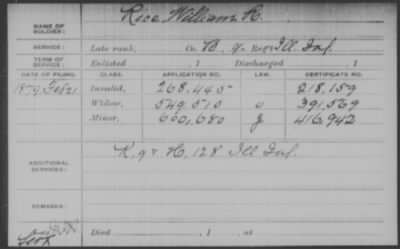 NAME OF SOLDIER: Rice, William H.
SERVICE: Late rank, Co. B, 9 Reg't Ill. Inf.
TERM OF SERVICE: Enlisted , 1 Discharged , 1
DATE OF FILING. CLASS. APPLICATION NO. LAW. CERTIFICATE NO.
1879 Feb 21 Invalid, 268,445 218,159
Widow, 549,510 391,569
Minor, 660,680 g 416,942
ADDITIONAL SERVICES: K, 9 & H, 128 Ill Inf.
REMARKS:
Died , 1 , at